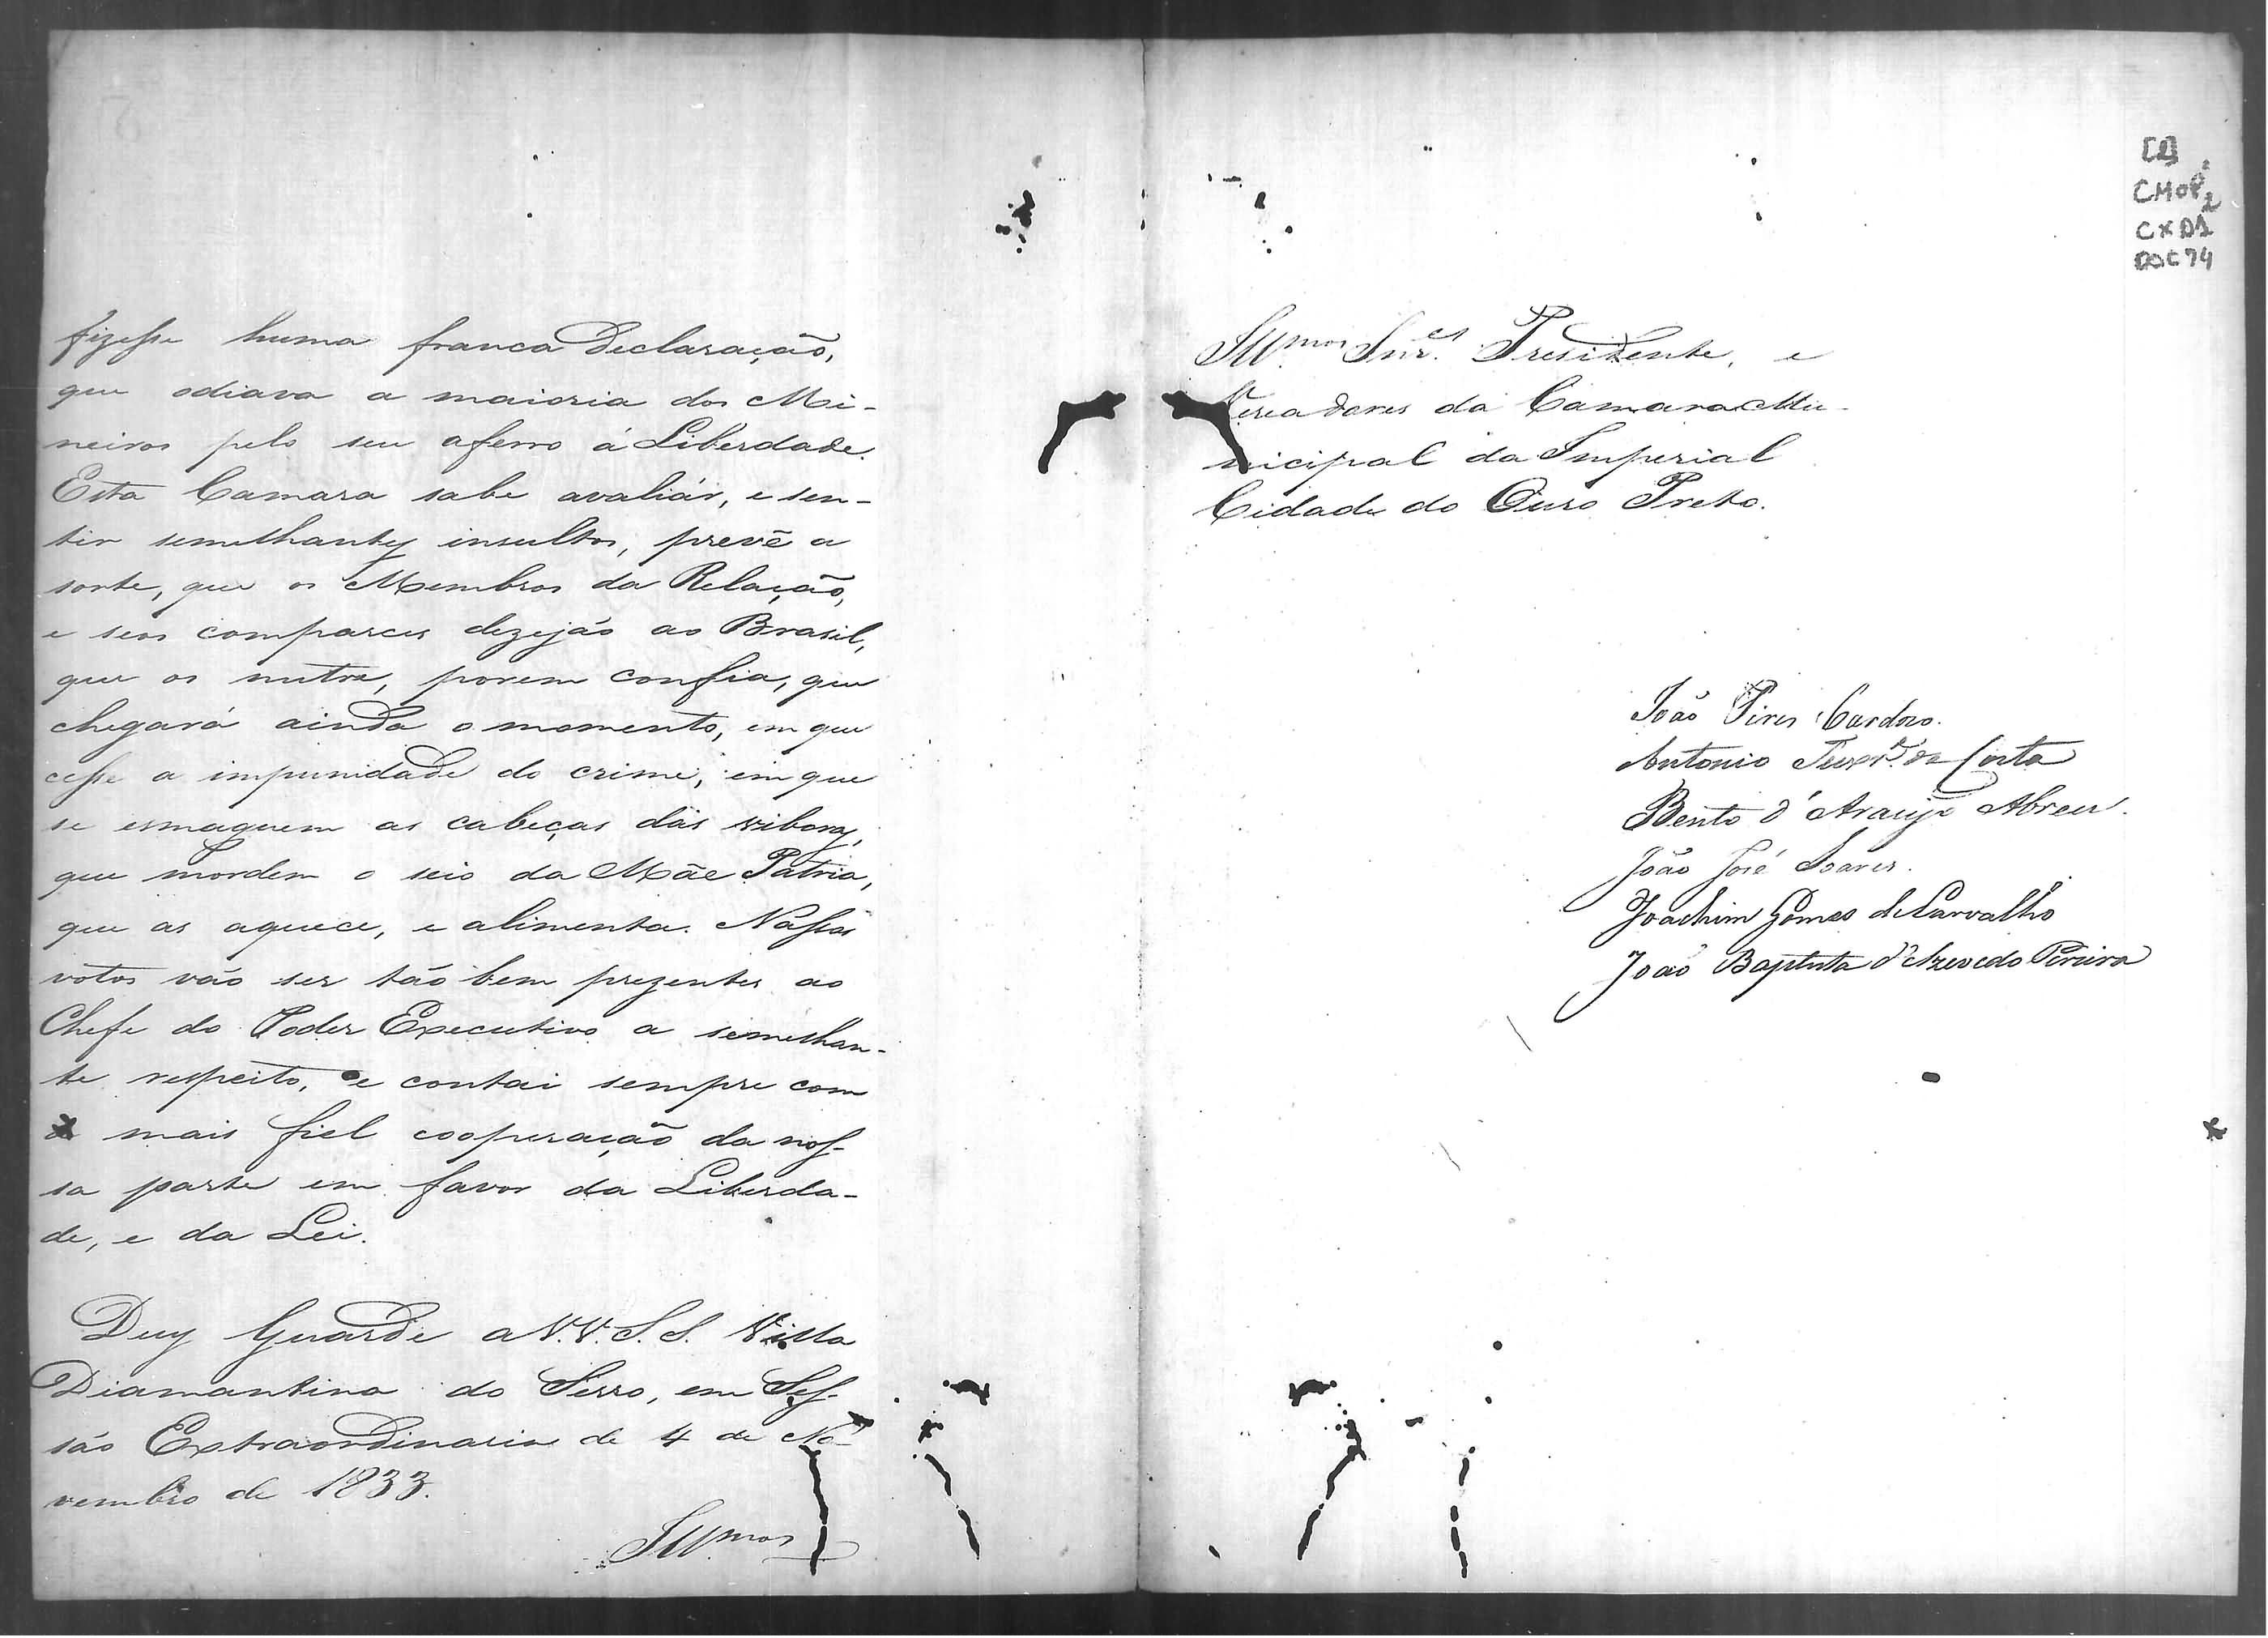 fizesse huma franca Declaração,
que odiava a maioria dos Mi-
neiros pelo seu aferro á Liberdade.
Esta Camara sabe avaliár, e sen-
tir semelhantes insultos, prevê a
sorte, que os Membros da Relação,
e seos comparces dezejão ao Brasil,
que os nutre, porem confia, que
chegará ainda o momento, em que
cesse a impunidade do crime, em que
se esmaguem as cabeças das viboras,
que mordem o seio da Mãe Patria,
que as aquece, e alimenta. Nossos
votos vão ser tão bem prezentes ao
Chefe do Poder Executivo a semelhan-
te respeito, e contai sempre com
a mais fiel cooperação da nos-
sa parte em favor da Liberda-
de, e da Lei.
Deus Guarde a V.V. S.S. Villa
Diamantina do Serro, em Ses-
são Extraordinaria de 4 de No-
vembro de 1833.
Illmos
[2]
CMOP
CX 01
DOC 74
Illmos Snres Presidente, e
Vereadores da Camara Mu-
nicipal da Imperial
Cidade do Ouro Preto.
João Pires Cardoso.
Antonio da Costa
Bento d'Araujo Abreu.
João José Soares.
Joachim Gomes de Carvalho
João Baptista d'Azevedo Pereira